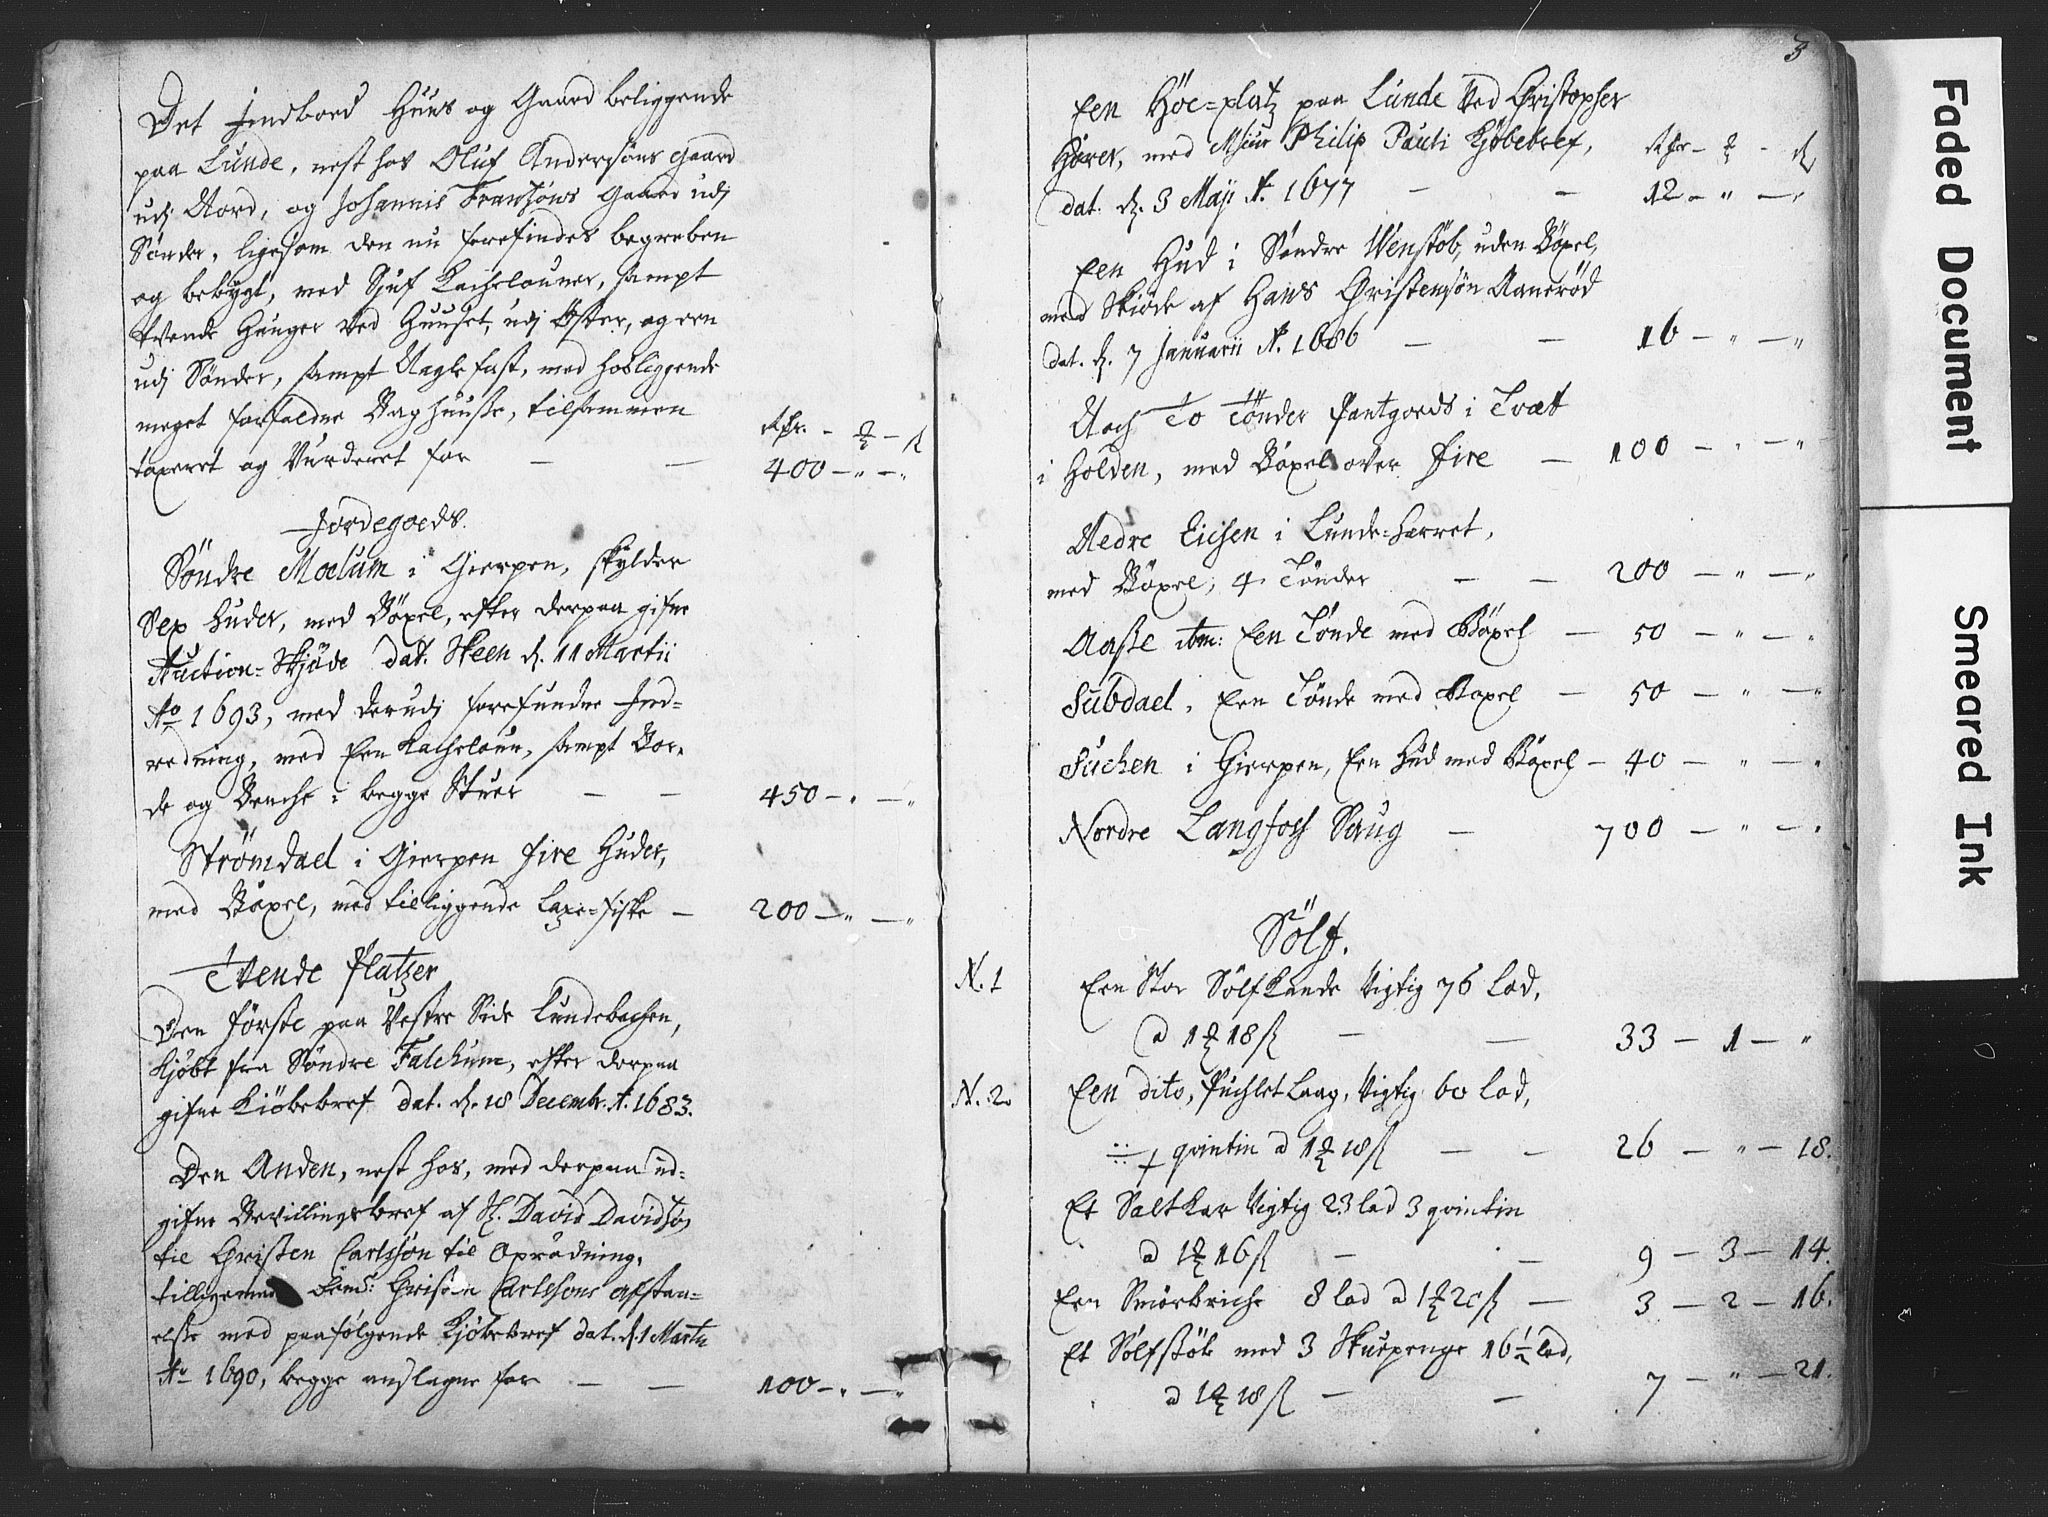 Det Indboed Huus og Gaard beliggende
paa Lunde, nest hos Oluf Andersøns gaard
udj Nord, og Johannis Franssøns Gaard udj
Sønder, ligesom den nu forefindes begreben
og bebygt, med Sjuf Kachelouner, sampt
tvende Hauger ved Huuset, udj Øster, og een
udj Sønder, sampt Naglefast, med hosliggende
meget forfaldne Baghuuse, tilsammen
taxeret og Vurderet for — — 400 — " — "
Jordegoeds.
Søndre Moelum i Gierpen, skylder
Sex huder, med Böxel, efter derpaa gifne
Auction-Skjøde dat. Skeen d. 11 Martii
Ao 1693, med derudj forefundne Ind-
redning, med Een Kacheloun, sampt Bor-
de og Benche i begge Stuer — — 450 — " — "
Strömdael i Gierpen fire Huder,
med Böxel, med tilliggende Laxe-fiske — 200 — " — "
Tvende Platzer
Den förste paa Vestre Side Lundebachen,
Kjøbt fra Søndre Falchum, efter derpaa
gifne Kiöbebref dat. d. 18 Decembr. A. 1683.
Den Anden, nest hos, med derpaa ud-
gifne Bevillingsbref af H. David Davidsøn
til Christen Carlssøn til Oprødning,
tilligemed bem: Christen Carlssöns afstan-
else med paafølgende Kjøbebref dat. d. 1 Martii
Ao 1690, begge anslagne for — — 100 — " — "
3
Een Höe-platz paa Lunde ved Christopher
Hörer, med Msieur Philip Pauli Kjøbebref,
dat. d. 3 Maji A. 1677 — — 12 — " — "
Een Hud i Søndre Wenstöb, uden Böxel,
med Skiöde af Hans Christensøn Aanerød
dat. d. 7 Januarii A. 1686 — — 16 — " — "
Noch To Tønder Pantgoeds i Tvæt
i Holden, med Böxel over fire — 100 — " — "
Nedre Eichen i Lunde-Herret,
med Böxel, 4 Tønder — — 200 — " — "
Aasse ibm: Een Tønde med Böxel — 50 — " — "
Subdael, Een Tønde med Böxel — 50 — " — "
Süchen i Gierpen, Een Hud med Böxel — 40 — " — "
Nordre Langfoss Saug — 700 — " — "
Sölf.
N. 1 Een Stor Sölfkande Vigtig 76 Lod,
a 1 18 ß — — 33 — 1 — "
N. 2 Een dito, Puchlet Laag, Vigtig 60 Lod,
qvintin a 1 18 ß — — 26 — " — 18.
Et Saltkar Vigtig 23 lod 3 qvintin
a 1 16 ß — — 9 — 3 — 14.
Een Smörbriche 8 lod a 1 20 ß — 3 — 2 — 16.
Et Sölfstöb med 3 Skuepenge 16 1/2 lod,
a 1 18 ß — — 7 — " — 21.
Faded Document
Smeared Ink